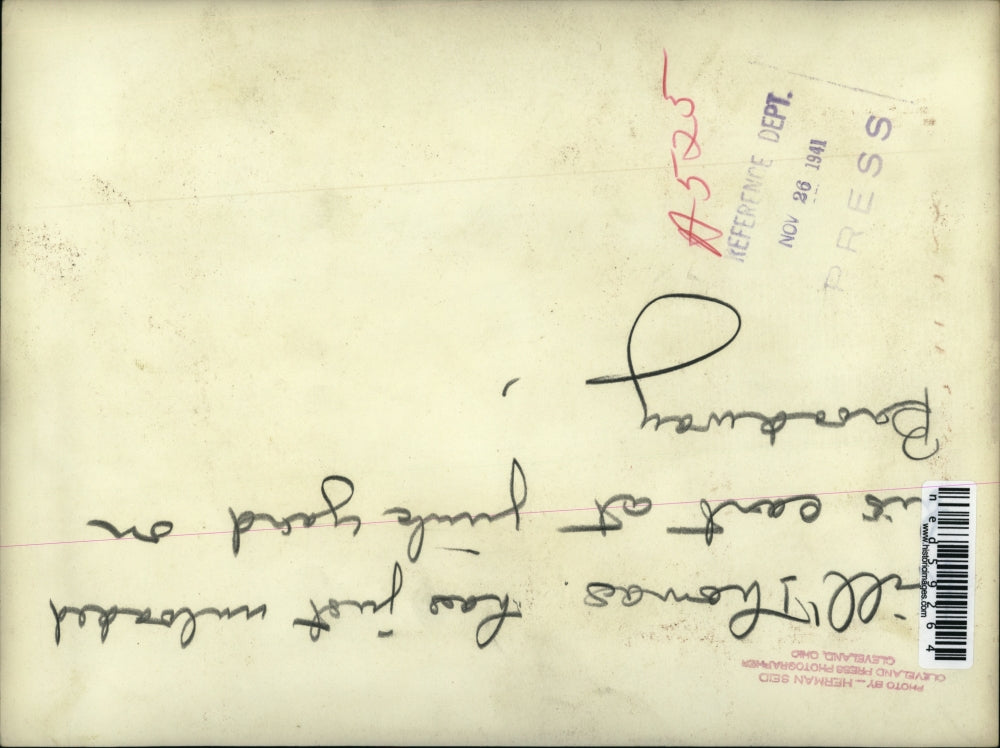 PHOTO BY — HERMAN SEID
CLEVELAND PRESS PHOTOGRAPHER
CLEVELAND, OHIO
ill Thomas has just unloaded
is cart at junk yard on
Broadway
A-5525
REFERENCE DEPT.
NOV 26 1941
PRESS
ned59264
www.historicimages.com